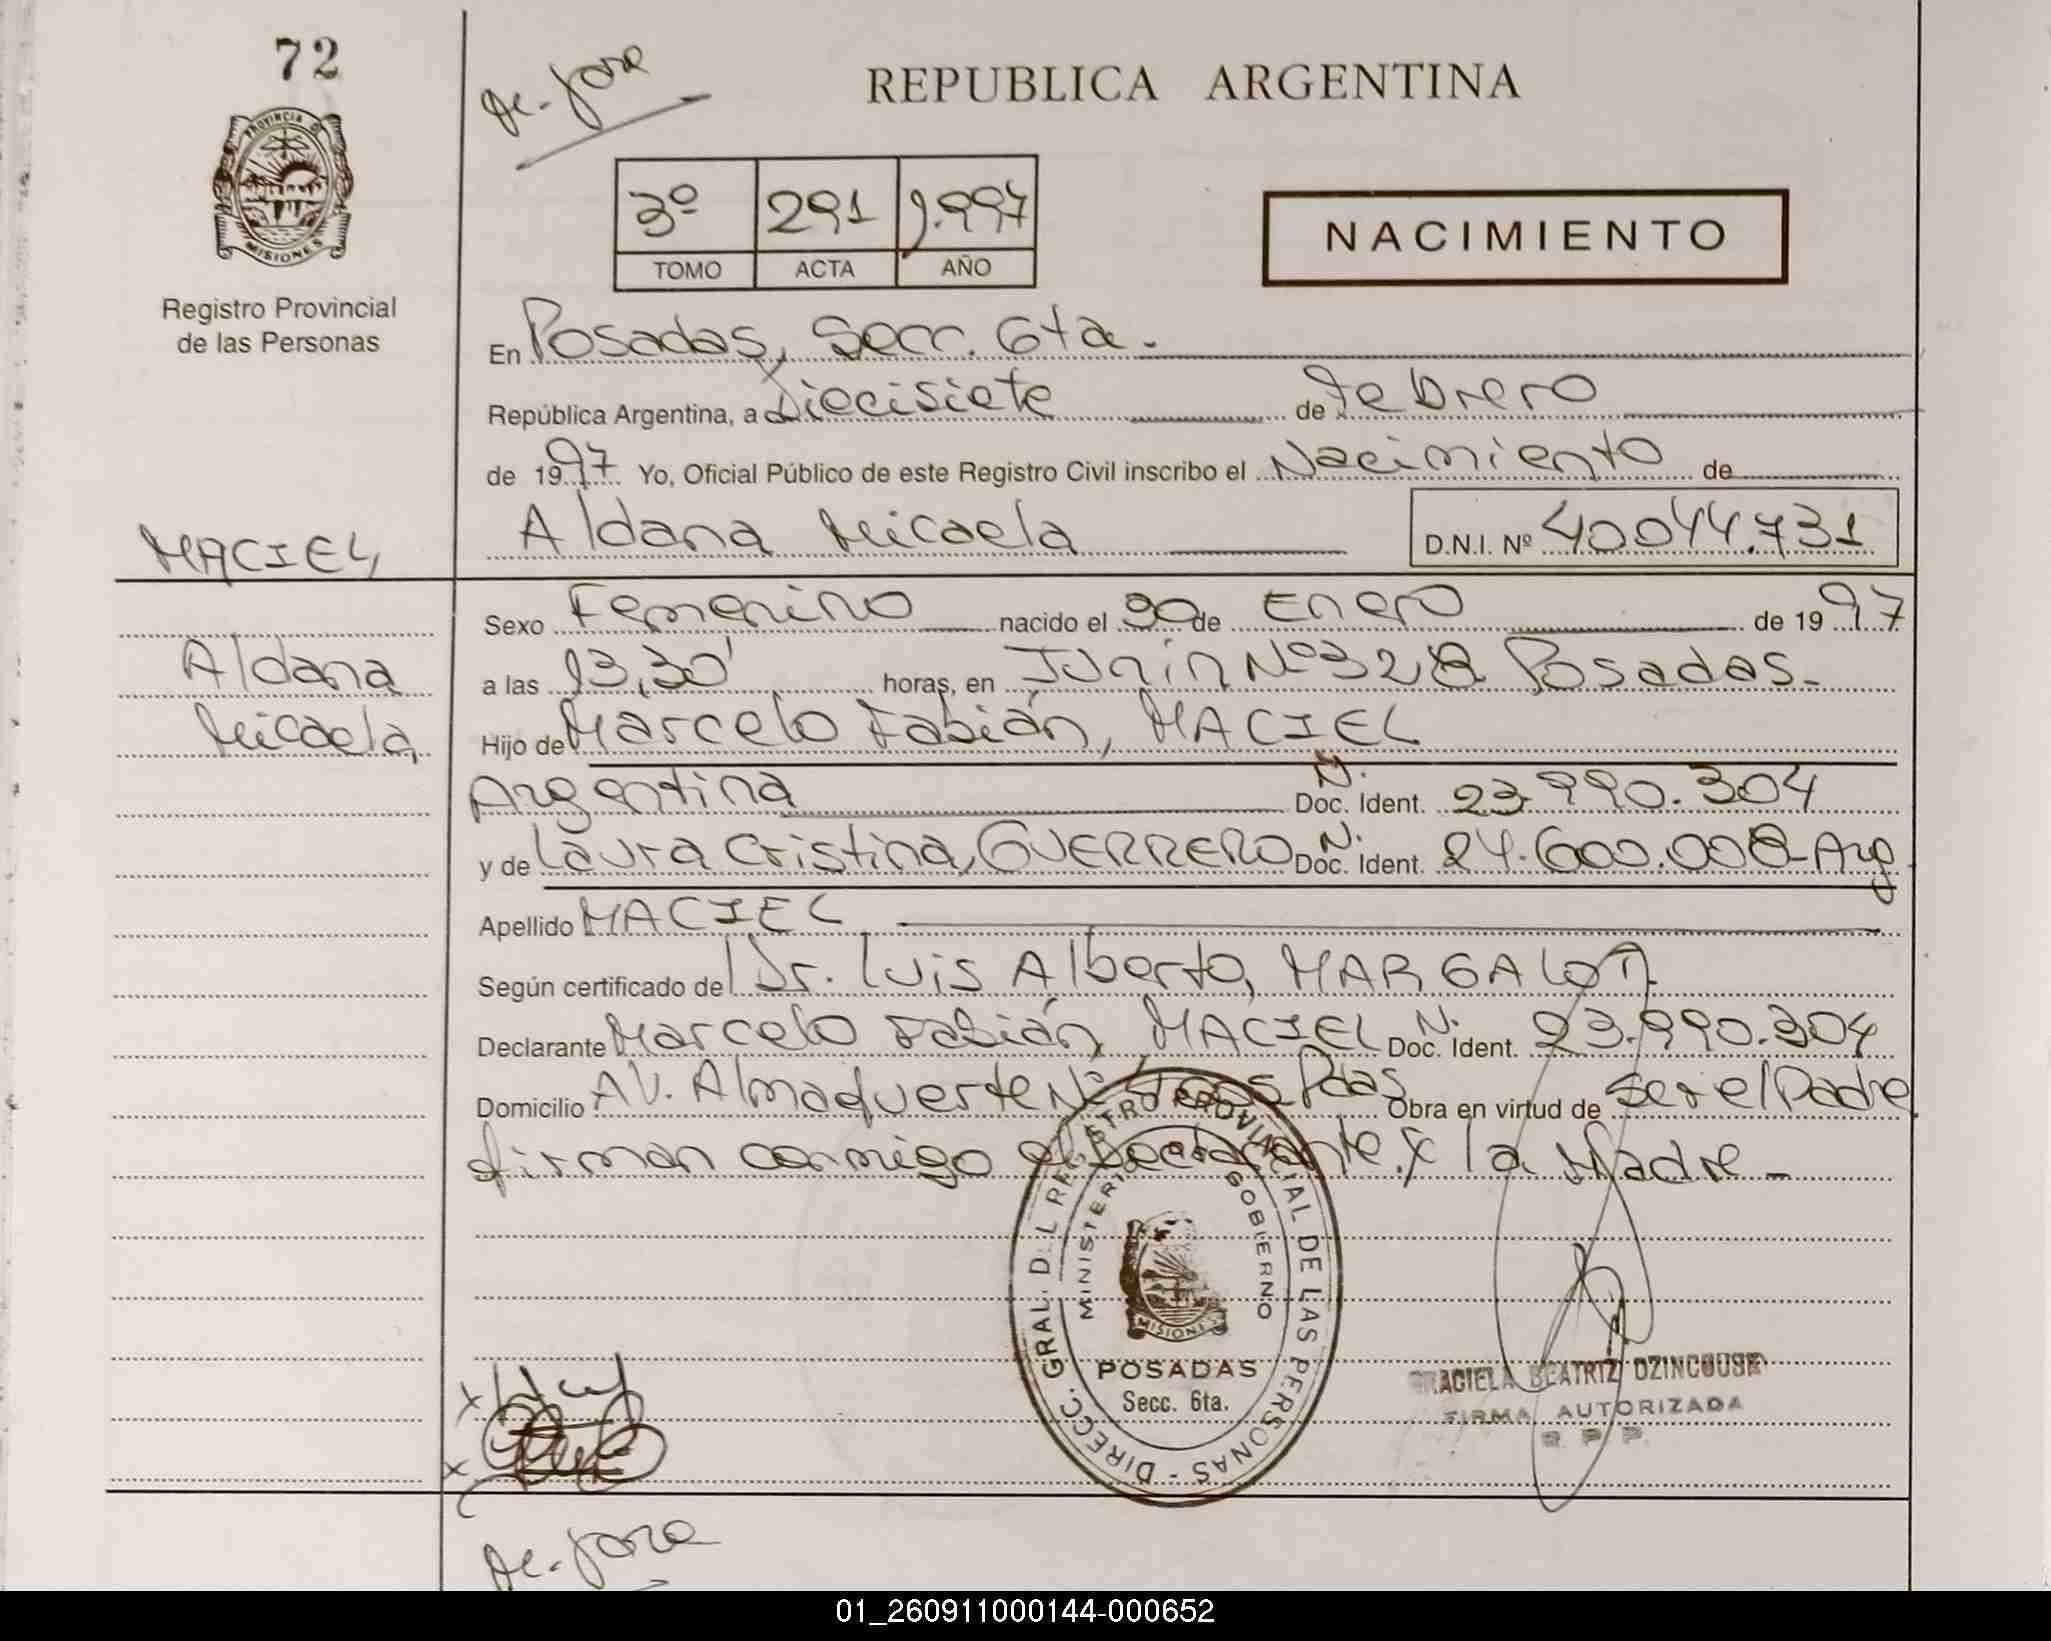 72
De. Jore
REPUBLICA ARGENTINA
PROVINCIA D
MISIONES
Registro Provincial
de las Personas
3º 291 1.997
TOMO ACTA AÑO
NACIMIENTO
En Posadas, Secc. 6ta.
República Argentina, a Diecisiete de Febrero
de 1997 Yo, Oficial Público de este Registro Civil inscribo el Nacimiento de
Aldana Micaela D.N.I. Nº 40044.731
MACIEL,
Sexo Femenino nacido el 30 de Enero de 1997
Aldana
a las 13,30' horas, en Junín Nº 328 Posadas.
Micaela,
Hijo de Marcelo Fabián, MACIEL
Argentina N. Doc. Ident. 23.990.304
y de Laura Cristina, GUERRERO N. Doc. Ident. 24.600.008 Arg
Apellido MACIEL
Según certificado del Dr. Luis Alberto, MARGALOT.
Declarante Marcelo Fabián, MACIEL N. Doc. Ident. 23.990.304
Domicilio AV. Almafuerte Nº Pdas Obra en virtud de ser el Padre
firman conmigo el Declarante y la Madre -
DIRECC. GRAL. DEL REGISTRO PROVINCIAL DE LAS PERSONAS -
MINISTERIO GOBIERNO
MISIONES
POSADAS
Secc. 6ta.
GRACIELA BEATRIZ DZINCOUSK
FIRMA AUTORIZADA
R. P. P.
De. Jore
01_260911000144-000652